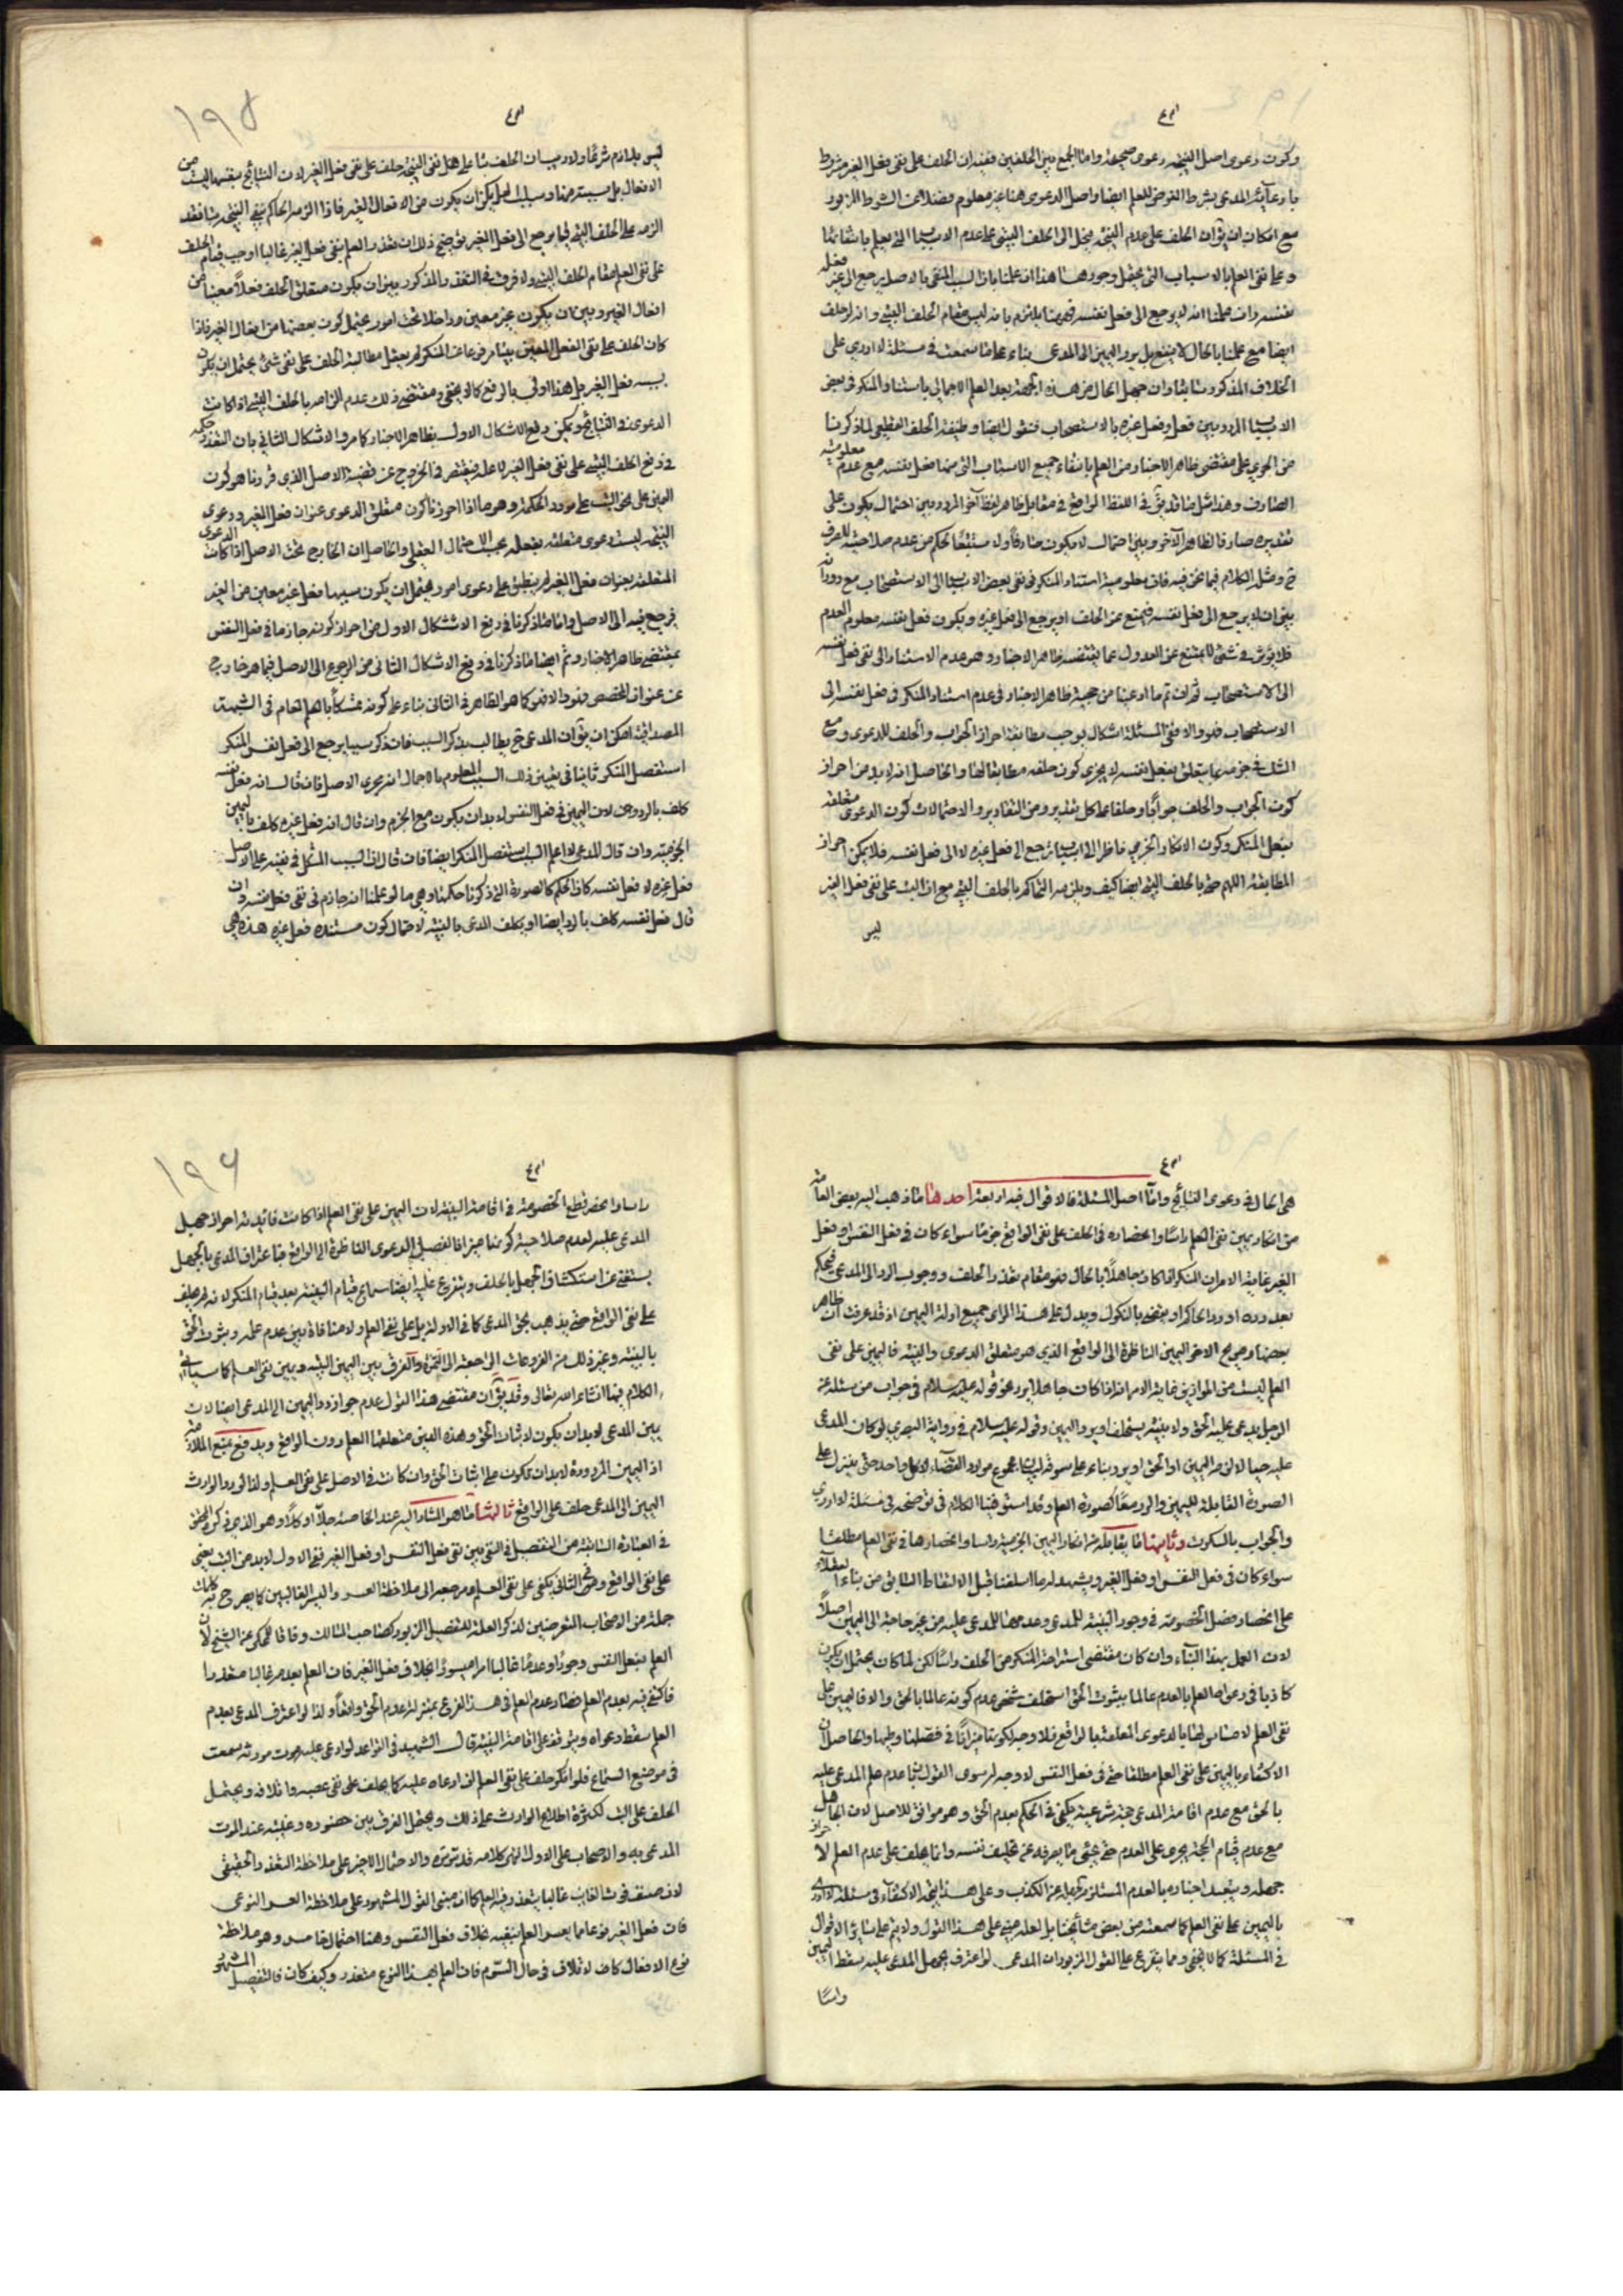 وكون دعوى اصل النتيجة دعوى صحيحة واما الجمع بين الحلفين ففيه ان الحلف على نفى فعل الغير مشروط
بادعاء المدعى بشرط الفوض للعلم ايضا واصل الدعوى هنا غير معلوم فضلا عن الشرط المزبور
مع امكان ان يق ان الحلف على عدم النتيجة ينحل الى الحلف البتى على عدم الاسباب التى يعلم بانتفائها
وعلى نفى العلم بالاسباب التى يحتمل وجودها هذا ان علمنا بان السبب المنفى بالاصل يرجع الى غير فعله
نفسه وان علمنا انه يرجع الى فعل نفسه فهنا يلتزم بانه ليس مقام الحلف البتى وانه لو حلف
ايضا مع علمنا بالحال لا ينفع بل يرد اليمين الى المدعى بناء على ما سمعت فى مسئلة لا ادرى على
الخلاف المذكور ثانيا وان جهل الحال من هذه الجهة بعد العلم الاجمالى باستناد المنكر فى بعض
الاسباب المردد بين فعله وفعل غيره بالاستصحاب فنقول ايضا وظيفة الحلف القطعى لما ذكرنا
من الجرى على مقتضى ظاهر الاخبار من العلم بانتفاء جميع الاسباب التى منها فعل نفسه مع عدم معلومية
الصارف وهذا مثل ما قد يق فى اللفظ الواقع فى مقابل ظاهر لفظ آخر المردد بين احتمال يكون على
تقديره صارفا لظاهر الآخر وبين احتمال لا يكون صادفا ولا مستتبعا لحكم من عدم صلاحيته للصرف
ح ومثله الكلام فيما نحن فيه فان معلومية استناد المنكر فى نفى بعض الاسباب الى الاستصحاب مع دورانه
بين ان لا يرجع الى فعل نفسه فيمنع عن الحلف او يرجع الى فعل غيره ويكون فعل نفسه معلوم العدم
فلا يؤثر فى شئ لا يمنع عن العدول عما يقتضيه ظاهر الاخبار وهو عدم الاستناد الى نفى فعل نفسه
الى الاستصحاب ثم ان تم ما ادعينا من حجية ظاهر الاخبار فى عدم استناد المنكر فى فعل نفسه الى
الاستصحاب فهو والا فى المسئلة اشكال يوجب مطابقة احراز الجواب والحلف للدعوى ومع
الشك فى جزمه بما يتعلق بفعل نفسه لا يحرز كون حلفه مطابقا لها والحاصل انه لا بد من احراز
كون الجواب والحلف جوابا وحلفا على كل تقدير ومن التقادير والاحتمالات كون الدعوى متعلقة
بفعل المنكر وكون الانكار الجزمى ناظرا الى اسباب يرجع الى فعل غيره لا الى فعل نفسه فلا يمكن احراز
المطابقة اللهم حتى بالحلف البتى ايضا كيف ويلزمه الحاكم بالحلف البتى مع ان البت على نفى فعل الغير
ليس
ليس بلازم شرعا ولا ريب ان الحلف بتا على نفى النتيجة حلف على نفى فعل الغير لان النتايج بنفسها ليست من
الافعال بل مسببة منها وسببها يمكن ان يكون من الافعال الغير فاذا الزمه الحاكم بنفى النتيجة بتا فقد
الزمه على الحلف البتى لما يرجع الى فعل الغير من حيث ذلك ان تعذر العلم بنفى فعل الغير غالبا اوجب قيام الحلف
على نفى العلم مقام الحلف البتى ولا فرق فى التعذر المذكور بين ان يكون متعلق الحلف فعلا معينا من
افعال الغير وبين ان يكون غير معين وداخلا تحت امور يحتمل كون بعضها من افعال الغير فاذا
كان الحلف على نفى الفعل المعين بتا مرفوعا عن المنكر لم يعقل مطالبة الحلف على نفى شئ يحتمل ان يكون
سببه فعل الغير بل هذا اولى بالرفع كما لا يخفى ومقتضى ذلك عدم الزامه بالحلف البتى اذا كانت
الدعوى فى النتايج ويمكن دفع الاشكال الاول بظاهر الاخبار كما مر والاشكال الثانى بان التعذر حكمه
فى رفع الحلف البتى على نفى فعل الغير لا علة فيقتصر فى الخروج عن قضية الاصل الذى قررنا هو كون
اليمين على نحو البت على مورد الحكمة وهو ما اذا احرزنا كون متعلق الدعوى عنوان فعل الغير ودعوى
النتيجة ليست دعوى متعلقة بفعله بحسب الاحتمال العقلى والحاصل ان الخارج تحت الاصل اذا كانت الدعوى
المتعلقة بعنوان فعل الغير لم ينطبق على دعوى امور يحتمل ان يكون سببها فعل غير معين من الغير
فرجع فيه الى الاصل واما ما ذكرنا فى دفع الاشكال الاول من احراز كونه جازما فى فعل النفس
بمقتضى ظاهر الاخبار وتم ايضا ما ذكرنا فى دفع الاشكال الثانى من الرجوع الى الاصل فيما هو خارج
عن عنوان المخصص فهو والا فهو كما هو الظاهر فى الثانى بناء على كونه تمسكا بالعام فى الشبهة
المصداقية امكن ان يق ان المدعى ح يطالب بذكر السبب فان ذكر سببا يرجع الى فعل نفس المنكر
استفصل المنكر ثانيا فى تعيين ذلك السبب المعلوم بالاجمال انه مجرى الاصل فان قال انه فعل نفسه
كلف بالرد لان اليمين فى فعل النفس لا بد ان يكون مع الجزم وان قال انه فعل غيره كلف باليمين
الجزمية وان قال المدعى لا اعلم السبب استفصل المنكر ايضا فان قال ان السبب المشكل فى نفيه على الاصل
فعل غيره لا فعل نفسه كان الحكم كالصورة التى ذكرنا حكمها وهى ما لو علمنا انه جازم فى نفى فعل نفسه وان
قال فعل نفسه كلف بالرد ايضا او يكلف المدعى بالبينة لاحتمال كون مستنده فعل غيره هذه هى
هى الحال فى دعوى النتايج واما اصل المسئلة فالاقوال فيه اربعة احدها ما ذهب اليه بعض العامة
من انكار يمين نفى العلم راسا وانحصاره فى الحلف على نفى الواقع جزما سواء كان فى فعل النفس او فعل
الغير غاية الامر ان المنكر اذا كان جاهلا بالحال فهو مقام تعذر الحلف ووجوب الرد الى المدعى فيحكم
بعد رده او رد الحاكم او يقضى بالنكول ويدل على هذا الراى جميع ادلة اليمين اذ قد عرفت ان ظاهر
بعضها وصريح الاخر اليمين الناظرة الى الواقع الذى هو متعلق الدعوى والبينة فاليمين على نفى
العلم ليست من الموازين غاية الامر انه اذا كان جاهلا يرد عن قوله عليه السلام فى جواب من سئله عن
الرجل يدعى عليه الحق ولا بينة يستحلف او يرد اليمين وقوله عليه السلام فى رواية البصرى لو كان المدعى
عليه حيا لالزمه اليمين او الحق او يرد بناء على سوقه لبيان مجموع موارد القضاء لا كل واحد حتى ينزل على
الصورة القابلة لليمين والرد معا كصورة العلم وقد استوفينا الكلام فى توضيحه فى مسئلة لا ادرى
والجواب بالسكوت وثانيها ما يقابله من انكار اليمين الجزمية راسا وانحصارها فى نفى العلم مطلقا
سواء كان فى فعل النفس او فعل الغير ويشهد له ما اسلفنا قبل الالتفاظ الثانى من بناء العقلاء
على انحصار فصل الخصومة فى وجود البينة للمدعى وعدمها للمدعى عليه من غير حاجة الى اليمين اصلا
لان العمل بهذا البناء وان كان مقتضى استراحة المنكر من الحلف راسا لكن لما كان يحتمل ان يكون
كاذبا فى دعواه العلم بالعدم عالما بثبوت الحق استحلف شخص عدم كونه عالما بالحق والا فاليمين على
نفى العلم لا مساس لها بالدعوى المتعلقة بالواقع فلا وجه لكونها ميزانا فى فصلها وطيها والحاصل ان
الاكتفاء باليمين على نفى العلم مطلقا حتى فى فعل النفس لا وجه له سوى القول بان عدم علم المدعى عليه
بالحق مع عدم اقامة المدعى حجة شرعية يكفى فى الحكم بعدم الحق وهو موافق للاصل لان الجاهل
مع عدم قيام الحجة يجرى على العدم حتى يجئى ما يصرفه عن تكليف نفسه وانما يحلف على عدم العلم لاحراز
جهله وبعيد اخباره بالعدم المستلزم لجهله من الكذب وعلى هذا يتجه الاكتفاء فى مسئلة لا ادرى
باليمين على نفى العلم كما سمعته من بعض مشايخنا بل لعله مبنى على هذا القول ولا يتم على سائر الاقوال
فى المسئلة كما لا يخفى ومما يتفرع على القول المزبور ان المدعى لو اعترف بجهل المدعى عليه سقط اليمين
راسا
راسا وانحصر قطع الخصومة فى اقامة البينة لان اليمين على نفى العلم اذا كانت فائدته احراز جهل
المدعى عليه لعدم صلاحية كونها ميزانا لفصل الدعوى الناظرة الى الواقع فباعتراف المدعى بالجهل
يستغنى عن استكشاف الجهل بالحلف ويتفرع عليه ايضا سماع قيام البينة بعد قيام المنكر لانه لم يحلف
على نفى الواقع حتى يذهب بحق المدعى كما فى الاولة بل على نفى العلم ولا منافاة بين عدم علمه وثبوت الحق
بالبينة وغير ذلك من الفروعات الراجعة الى الثمرة والفرق بين اليمين البتية ويمين نفى العلم كما سياتى
الكلام فيها انشاء الله تعالى وقد يق ان مقتضى هذا القول عدم جواز رد اليمين الى المدعى ايضا لان
يمين المدعى لا بد ان يكون لاثبات الحق وهذه اليمين متعلقها العلم دون الواقع ويدفع بمنع الملازمة
اذ اليمين المردودة لا بد ان تكون على اثبات الحق وان كانت فى الاصل على نفى العلم ولذا لو رد الوارث
اليمين الى المدعى حلف على الواقع ثالثها ما هو المشار اليه عند الخاصة جلا او كلا وهو الذى ذكره المحقق
فى العبارة السابقة من التفصيل فى النفى بين نفى فعل النفس او فعل الغير ففى الاول لا بد من البت يعنى
على نفى الواقع وفى الثانى يكفى على نفى العلم ومرجعه الى ملاحظة العسر واليسر الغالبين كما يصرح به كلمات
جملة من الاصحاب المتعرضين لذكر العلة للتفصيل المزبور كصاحب المسالك وفاقا للمحكى عن الشيخ لان
العلم بفعل النفس وجودا وعدما غالبا امرا ميسورا بخلاف فعل الغير فان العلم بعدمه غالبا متعذرا
فاكتفى فيه بعدم العلم فصار عدم العلم فى هذا الفرع بمنزلة عدم الحق واقعا ولذا لو اعترف المدعى بعدم
العلم سقط دعواه ويتوقف على اقامة البينة قال الشهيد فى القواعد لو ادعى عليه بموت مورثه سمعت
فى موضع السماع فلو انكر حلف على نفى العلم ان ادعاه عليه كما يحلف على نفى غصبه واتلافه ويحتمل
الحلف على البت لكثرة اطلاع الوارث على ذلك ويحتمل الفرق بين حضوره وغيبته عند الموت
المدعى به والاصحاب على الاول انتهى كلامه قدس سره والاحتمال الاخير على ملاحظة التعذر الحقيقى
لان صنف فوت الغائب غالبا يتعذر فيه العلم كما ان مبنى القول المشهود على ملاحظة العسر النوعى
فان فعل الغير نوعا مما يعسر العلم بنفيه بخلاف فعل النفس وهنا احتمال خامس وهو ملاحظة
نوع الافعال كالاتلاف فى حال النوم فان العلم بهذا النوع متعذر وكيف كان فالتفصيل المشهور